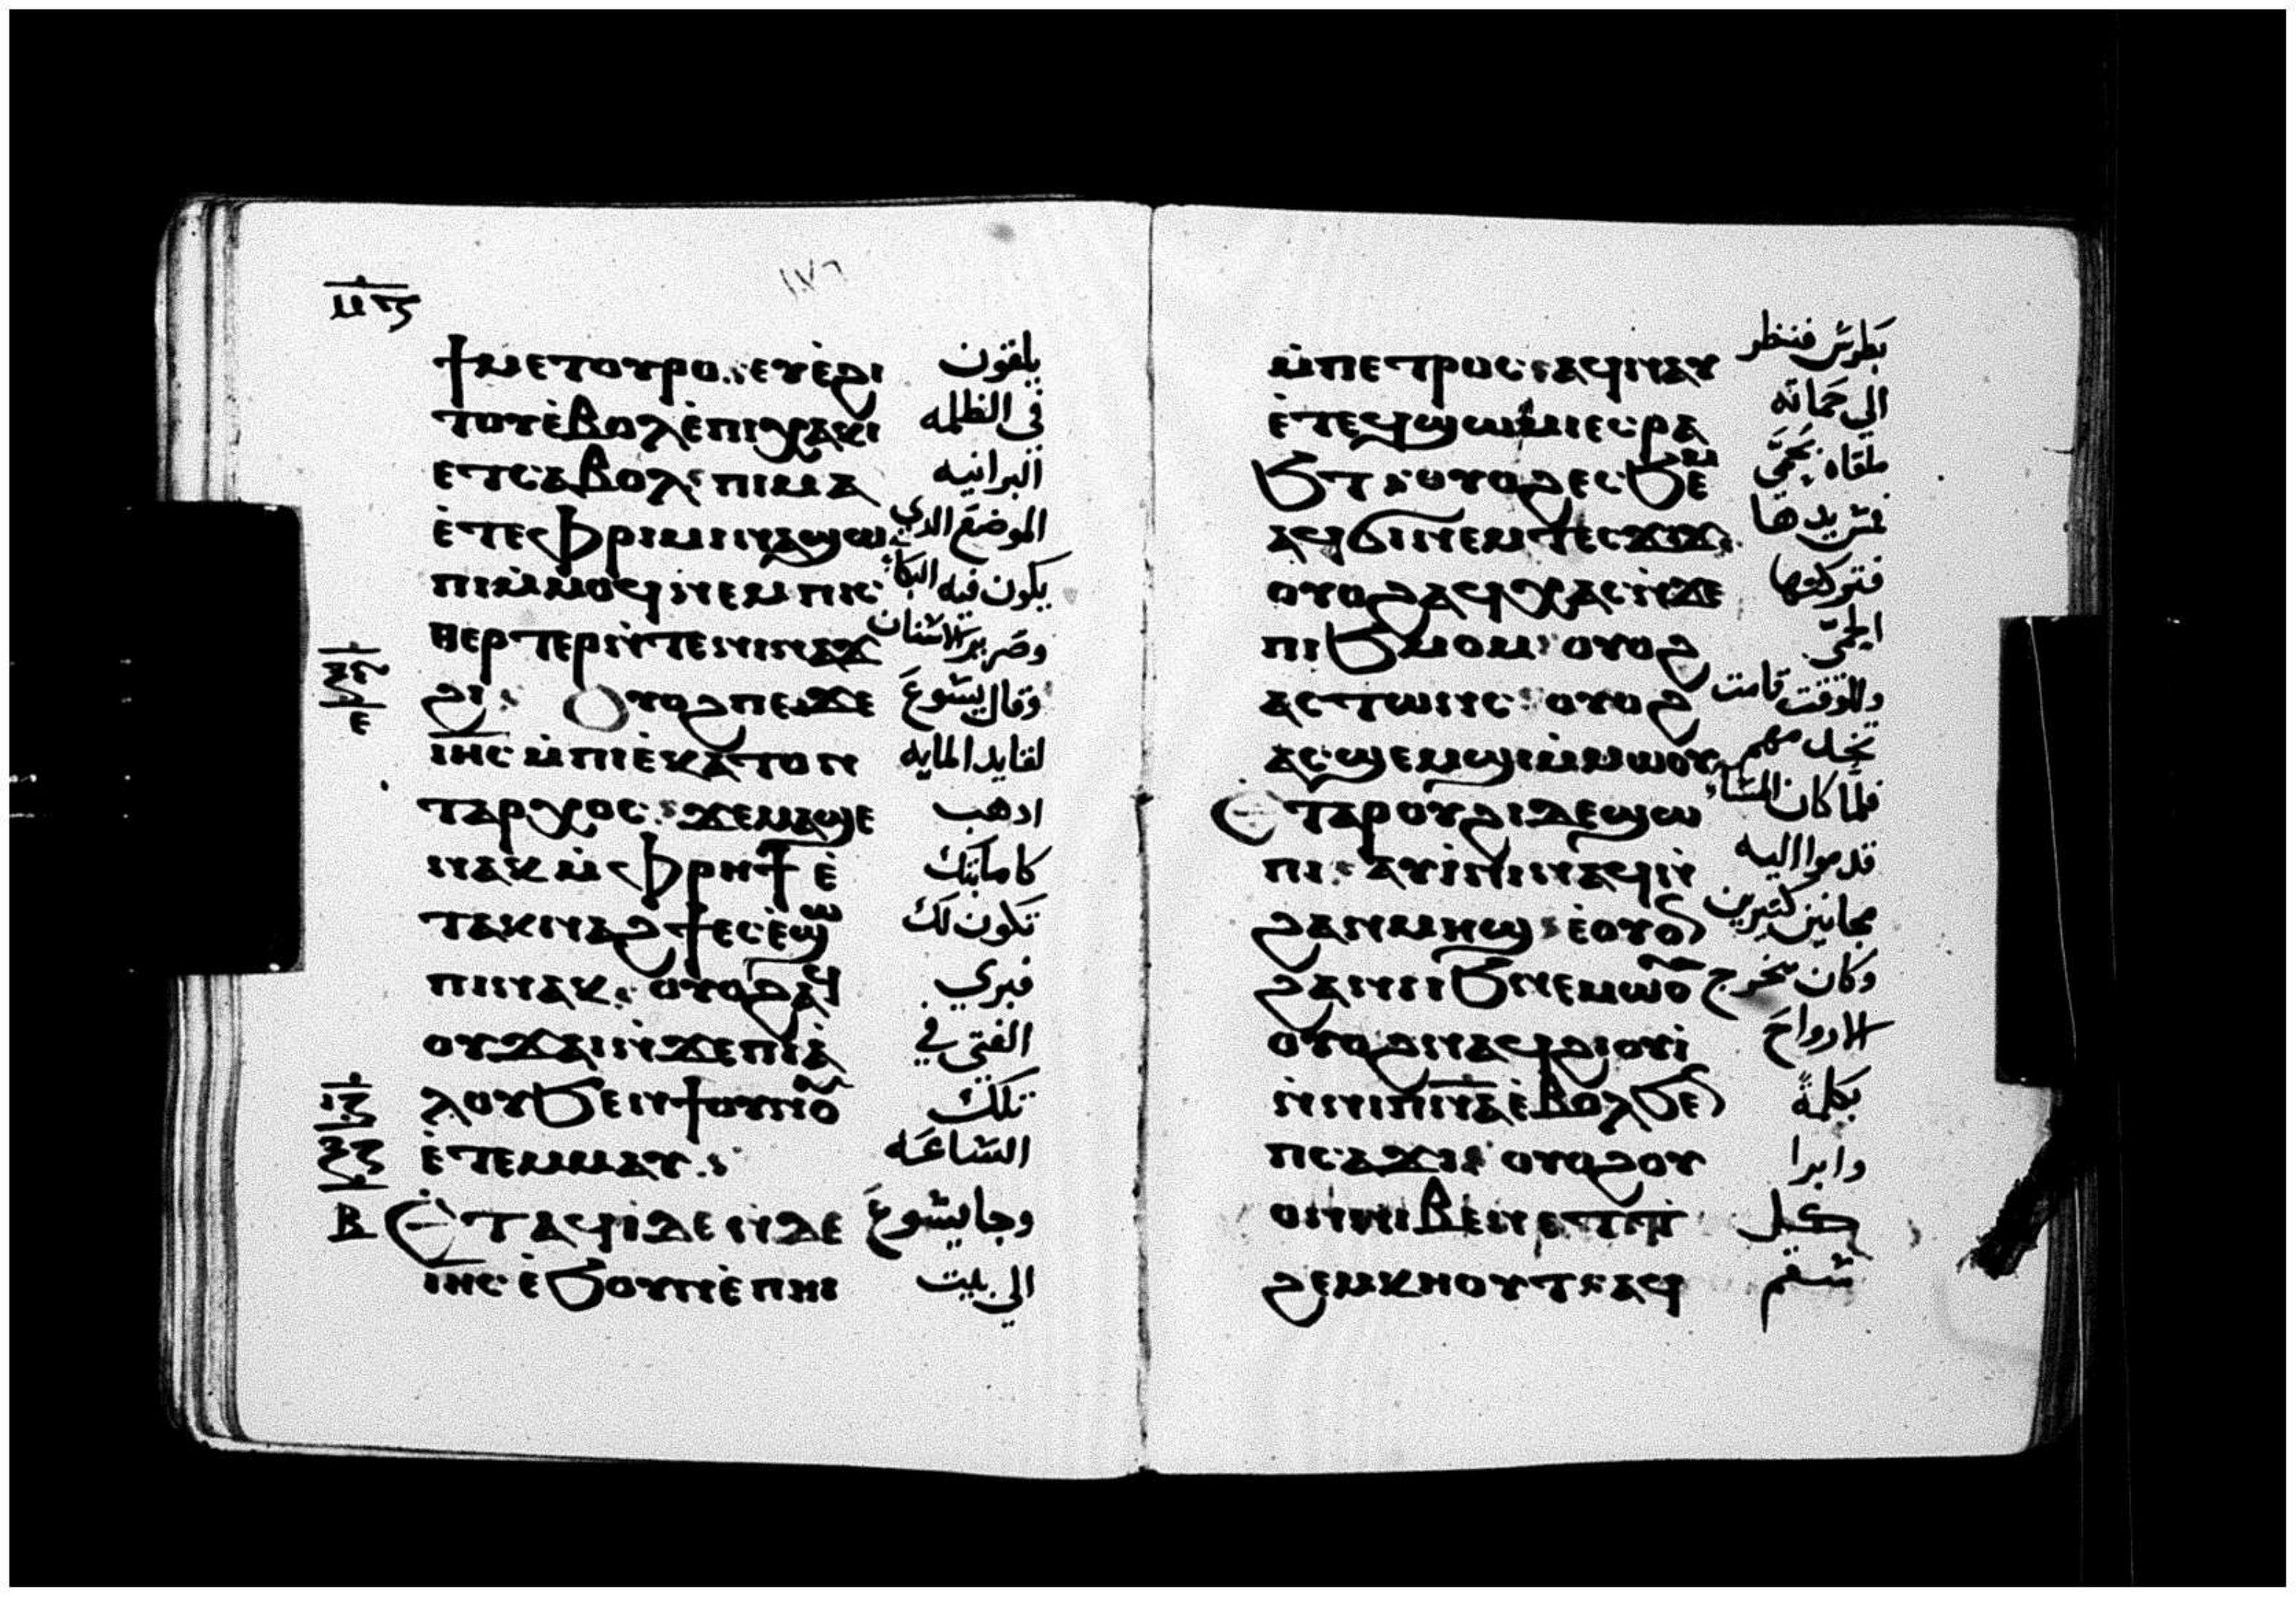 ⲙ̅ⲋ̅
١٧٦
ϯⲙⲉⲧⲟⲩⲣⲟ : ⲉⲩⲉ̀ϩⲓ يلقون
ⲧⲟⲩⲉ̀ⲃⲟⲗⲉ̀ⲡⲓⲭⲁⲕⲓ في الظلمه
ⲉⲧⲥⲁⲃⲟⲗ : ⲡⲓⲙⲁ البرانيه
ⲉ̀ⲧⲉⲫⲣⲓⲙⲓⲛⲁϣⲱ الموضع الدي
ⲡⲓⲙ̀ⲙⲟϥ ⲛⲉⲙⲡⲓⲥ يكون فيه البكاء
ⲑⲉⲣⲧⲉⲣⲛ̀ⲧⲉⲛⲓⲛⲁϫ وصرير الاسنان
ϩⲓ : ⲟⲩⲟϩⲡⲉϫⲉ وقال يسوع
ⲓⲏⲥ ⲙ̀ⲡⲓⲉ̀ⲕⲁⲧⲟⲛ لقايد المايه
ⲧⲁⲣⲭⲟⲥ : ϫⲉⲙⲁϣⲉ ادهب
ⲛⲁⲕ ⲙ̀ⲫⲣⲏϯ ⲉ̀ كامانتك
ⲧⲁⲕⲛⲁϩϯⲉⲥⲉ̀ϣⲱ تكون لك
ⲡⲓⲛⲁⲕ : ⲟⲩⲟϩⲁϥ فبري
ⲟⲩϫⲁⲓⲛ̀ϫⲉⲡⲓⲁ̀ الفتى في
ⲗⲟⲩϧⲉⲛϯⲟⲩⲛⲟⲩ تلك
ⲉ̀ⲧⲉⲙⲙⲁⲩ : الساعه
ⲉ̀ⲧⲁϥⲓ̀ⲇⲉ ⲛ̀ϫⲉ وجا يسوع
ⲓⲏⲥ ⲉ̀ϧⲟⲩⲛⲉ̀ⲡⲏⲓ الي بيت
ⲙ̀ⲡⲉⲧⲣⲟⲥ : ⲁϥⲛⲁⲩ بطرس فنظر
ⲉ̀ⲧⲉϥϣⲱⲙⲓⲉⲥⲣⲁ الي حماته
ϧⲧ : ⲟⲩⲟϩⲉⲥϧⲉⲙ ملقاه بحمى
ⲁϥϭⲓⲛⲉⲙⲧⲉⲥϫⲓϫ فمس يدها
ⲟⲩⲟϩⲁϥⲭⲁⲥⲛ̀ϫⲉ فتركتها
ⲡⲓϧⲙⲟⲙ : ⲟⲩⲟϩ الحمى
ⲁⲥⲧⲱⲛⲥ : ⲟⲩⲟϩ وللوقت قامت
ⲁⲥϣⲉⲙϣⲓⲙ̀ⲙⲱⲟⲩ تخدمهم
ⲉ̀ⲧⲁⲣⲟⲩϩⲓⲇⲉϣⲱ فلما كان المساء
ⲡⲓ : ⲁⲩⲓ̀ⲛⲓⲛⲁϥⲛ̀ قدموا اليه
ϩⲁⲛⲙⲏϣ : ⲉ̀ⲟⲩⲟⲛ مجانين كتيرين
ϩⲁⲛⲓϧⲛⲉⲙⲱⲟⲩ وكان يخرج
ⲟⲩⲟϩⲛⲁϥϩⲓⲟⲩⲓ̀ الارواح
ⲛ̀ⲛⲓⲡ̅ⲛ̅ⲁ̅ⲉ̀ⲃⲟⲗϧⲉⲛ بكلمة
ⲡⲥⲁϫⲓ : ⲟⲩⲟϩⲟⲩ وابرا
ⲟⲛⲛⲓⲃⲉⲛⲉⲧⲧ كل
ϩⲉⲙⲕⲏⲟⲩⲧ : ⲁϥ سقم